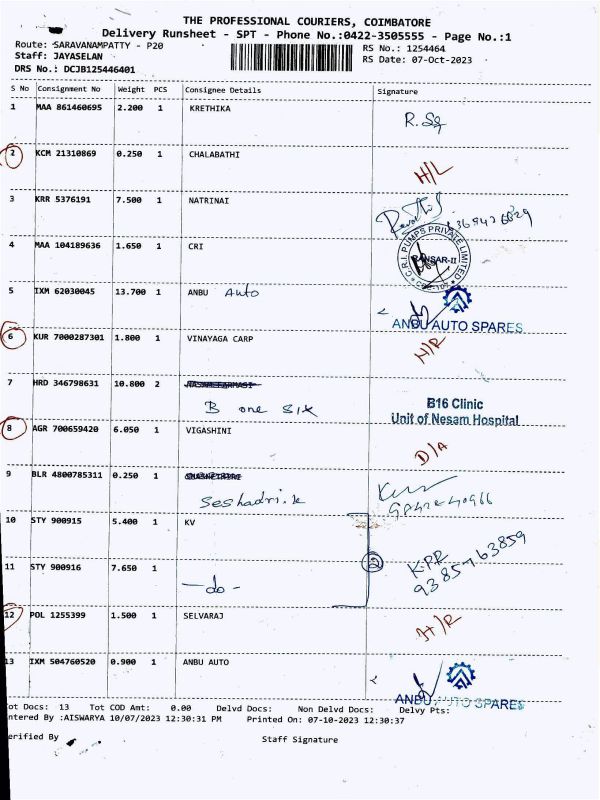 THE PROFESSIONAL COURIERS, COIMBATORE
Delivery Runsheet - SPT - Phone No.:0422-3505555 - Page No.:1
Route: SARAVANAMPATTY - P20
Staff: JAYASELAN
DRS No.: DCJB125446401
RS No.: 1254464
RS Date: 07-Oct-2023
S No Consignment No Weight PCS Consignee Details Signature
1 MAA 861460695 2.200 1 KRETHIKA
2 KCM 21310869 0.250 1 CHALABATHI H/L
3 KRR 5376191 7.500 1 NATRINAI
4 MAA 104189636 1.650 1 CRI
C.R.I. PUMPS PRIVATE LIMITED
5 IXM 62030045 13.700 1 ANBU Auto
ANBU AUTO SPARES
6 KUR 7000287301 1.800 1 VINAYAGA CARP H/R
7 HRD 346798631 10.800 2
B one six
B16 Clinic
Unit of Nesam Hospital
8 AGR 700659420 6.050 1 VIGASHINI D/A
9 BLR 4800785311 0.250 1
Seshadri.k
10 STY 900915 5.400 1 KV
2
KPR
9385763859
11 STY 900916 7.650 1
-do-
12 POL 1255399 1.500 1 SELVARAJ H/R
13 IXM 504760520 0.900 1 ANBU AUTO
ANBU AUTO SPARES
Tot Docs: 13 Tot COD Amt: 0.00 Delvd Docs: Non Delvd Docs: Delvy Pts:
ntered By :AISWARYA 10/07/2023 12:30:31 PM Printed On: 07-10-2023 12:30:37
erified By Staff Signature